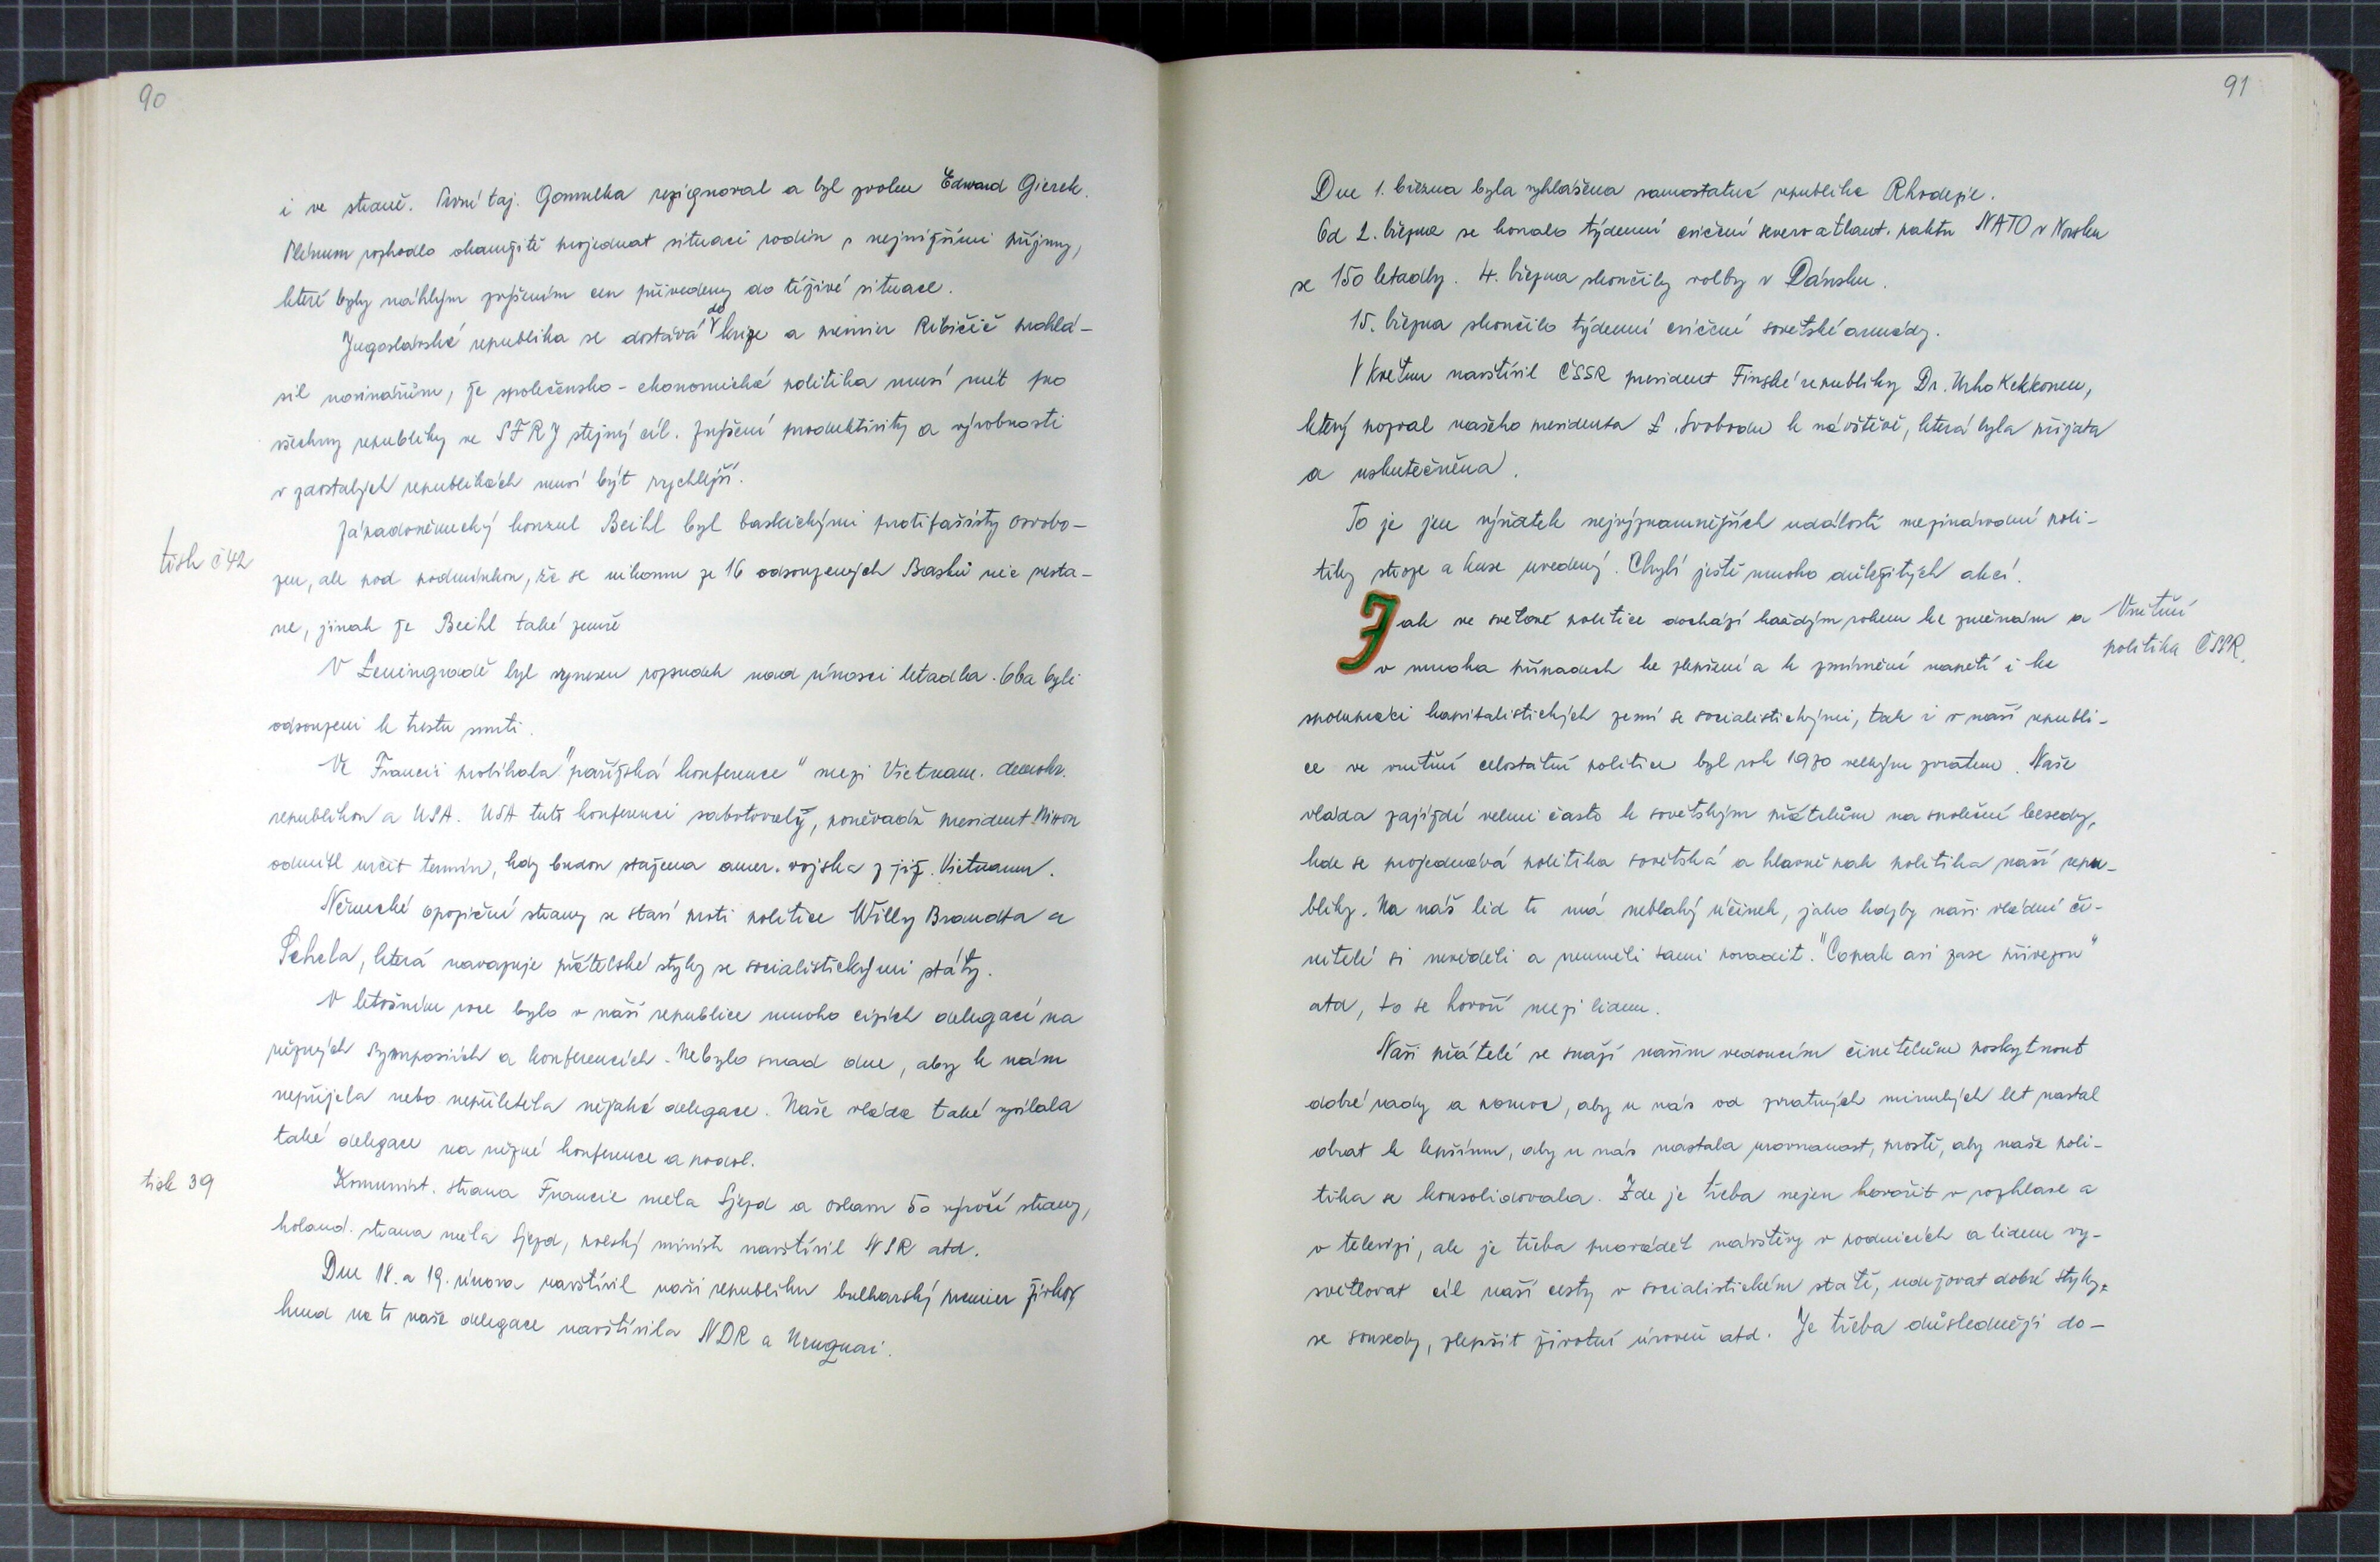 90
i ve straně. První taj. Gomulka rezignoval a byl zvolen Edward Gierek.
Plénum rozhodlo okamžitě projednat situaci rodin s nejnižšími příjmy,
které byly náhlým zvýšením cen přivedeny do tíživé situace.
Jugoslávská republika se dostává do krize a premier Ribičič prohlá-
sil novinářům, že společensko-ekonomická politika musí mít pro
všechny republiky ve SFRJ stejný cíl. Zvýšení produktivity a výrobnosti
v zaostalých republikách musí být rychlejší.
Západoněmecký konzul Beihl byl baskickými protifašisty osvobo-
tisk č 42
zen, ale pod podmínkou, že se nikomu ze 16 odsouzených Basků nic nesta-
ne, jinak že Beihl také zemře
V Leningradě byl vynesen rozsudek nad únosci letadla. Oba byli
odsouzeni k trestu smrti.
Ve Francii probíhala "pařížská konference" mezi Vietnam. demokr.
republikou a USA. USA tuto konferenci sabotovaly, poněvadž president Nixon
odmítl určit termín, kdy budou stažena amer. vojska z již. Vietnamu.
Německé opoziční strany se staví proti politice Willy Brandta a
Šehela, která navazuje přátelské styky se socialistickými státy.
V letošním roce bylo v naší republice mnoho cizích delegací na
různých symposiích a konferencích. Nebylo snad dne, aby k nám
nepřijela nebo nepřiletěla nějaká delegace. Naše vláda také vysílala
také delegace na různé konference a podob.
tisk 39
Komunist. strana Francie měla Sjezd a oslavu 50 výročí strany,
holand. strana měla Sjezd, polský ministr navštívil NSR atd.
Dne 18. a 19. února navštívil naši republiku bulharský premier Živkov
hned na to naše delegace navštívila NDR a Uruguai.
91
Dne 1. března byla vyhlášena samostatná republika Rhodezie.
Od 2. března se konalo týdenní cvičení severoatlant. paktu NATO v Norsku
se 150 letadly. 4. března skončily volby v Dánsku.
15. března skončilo týdenní cvičení sovětské armády.
V květnu navštívil ČSSR president Finské republiky Dr. Urho Kekkonen,
který pozval našeho presidenta L. Svobodu k návštěvě, která byla přijata
a uskutečněna.
To je jen výňatek nejvýznamnějších událostí mezinárodní poli-
tiky stroze a kuse uvedený. Chybí ještě mnoho důležitých akcí.
Jak ve světové politice dochází každým rokem ke změnám a
Vnitřní
politika ČSSR.
v mnoha případech ke zlepšení a k zmírnění napětí i ke
spolupráci kapitalistických zemí se socialistickými, tak i v naší republi-
ce ve vnitřní celostátní politice byl rok 1970 velkým zvratem. Naše
vláda zajíždí velmi často k sovětským přátelům na společné besedy,
kde se projednává politika sovětská a hlavně pak politika naší repu-
bliky. Na náš lid to má neblahý účinek, jako kdyby naši vládní či-
nitelé si nevěděli a neuměli sami poradit. "Copak asi zase přivezou"
atd, to se hovoří mezi lidem.
Naši přátelé se snaží našim vedoucím činitelům poskytnout
dobré rady a pomoc, aby u nás od zvratných minulých let nastal
obrat k lepšímu, aby u nás nastala srovnanost, prostě, aby naše poli-
tika se konsolidovala. Zde je třeba nejen hovořit v rozhlase a
v televizi, ale je třeba provádět návštěvy v podnicích a lidem vy-
světlovat cíl naší cesty v socialistickém státě, udržovat dobré styky
se sousedy, zlepšit životní úroveň atd. Je třeba důsledněji do-